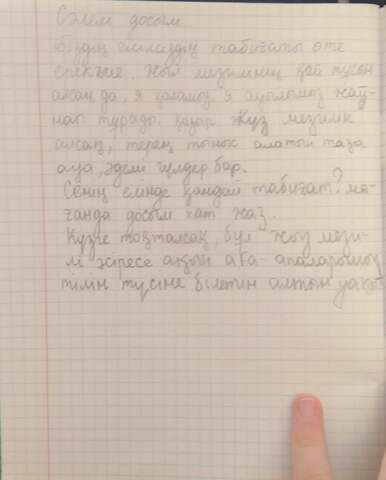 Сәлем досым
Біздің еліміздің табиғаты өте
ерекше. Жыл мезгілінің қай тұсын
алсаң да, я қаламыз я ауылымыз жай-
нап тұрады. қазір Күз мезгілін
алсақ, терең тыныс алатын таза
ауа, әдемі гүлдер бар.
Сенің елінде қандай табиғат? ма-
ғанда досым хат жаз.
Күзге тоқталсақ, бұл жыл мезгі-
лі әсіресе ақын аға-апаларымыз
тілін түсіне білетін алтын уақыт